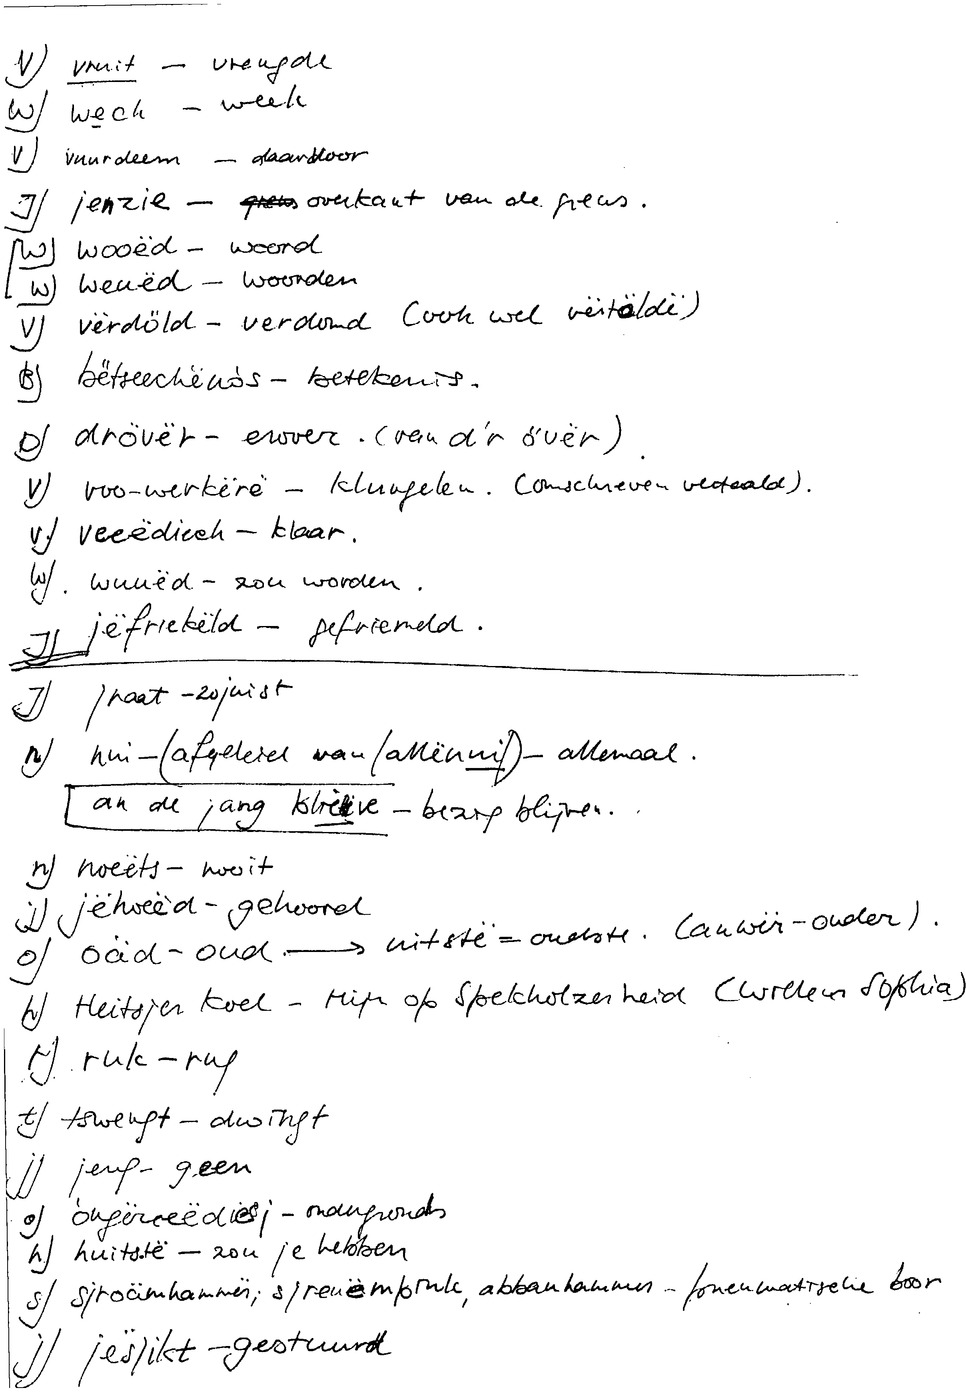 V) vruit - vreugde
W) wech - week
V) vuurdeem - daardoor
J) jenzie - grens overkant van de grens.
W) wooëd - woord
W) weuëd - woorden
V) vërdöld - verdomd (ook wel vëitöldë)
B) bëtseechënòs - betekenis.
D) drövër - erover. (van d'r övër)
V) voo-werkërë - klungelen. (omschreven vertaald).
V) veeëdiech - klaar.
W). wuuëd - zou worden.
J) jëfriekëld - gefriemeld.
J) jraat - zojuist
n) nui - (afgeleid van (allënui)) - allemaal.
an de jang blieëve - bezig blijven.
n) noeëts - nooit
j) jëhoeëd - gehoord
o) oäd - oud. → uitstë = oudste. (auwër - ouder).
h) Heitsjer koel - Mijn op Spekholzerheid (Willem Sophia)
r) ruk - rug
t) tswengt - dwingt
j) jeng - geen
o) óngëreeëdiesj - ondergronds
h) huitstë - zou je hebben
s) sjroämhammër, sjreuëmpruk, abbauhammer - pneumatische boor
j) jësjikt - gestuurd